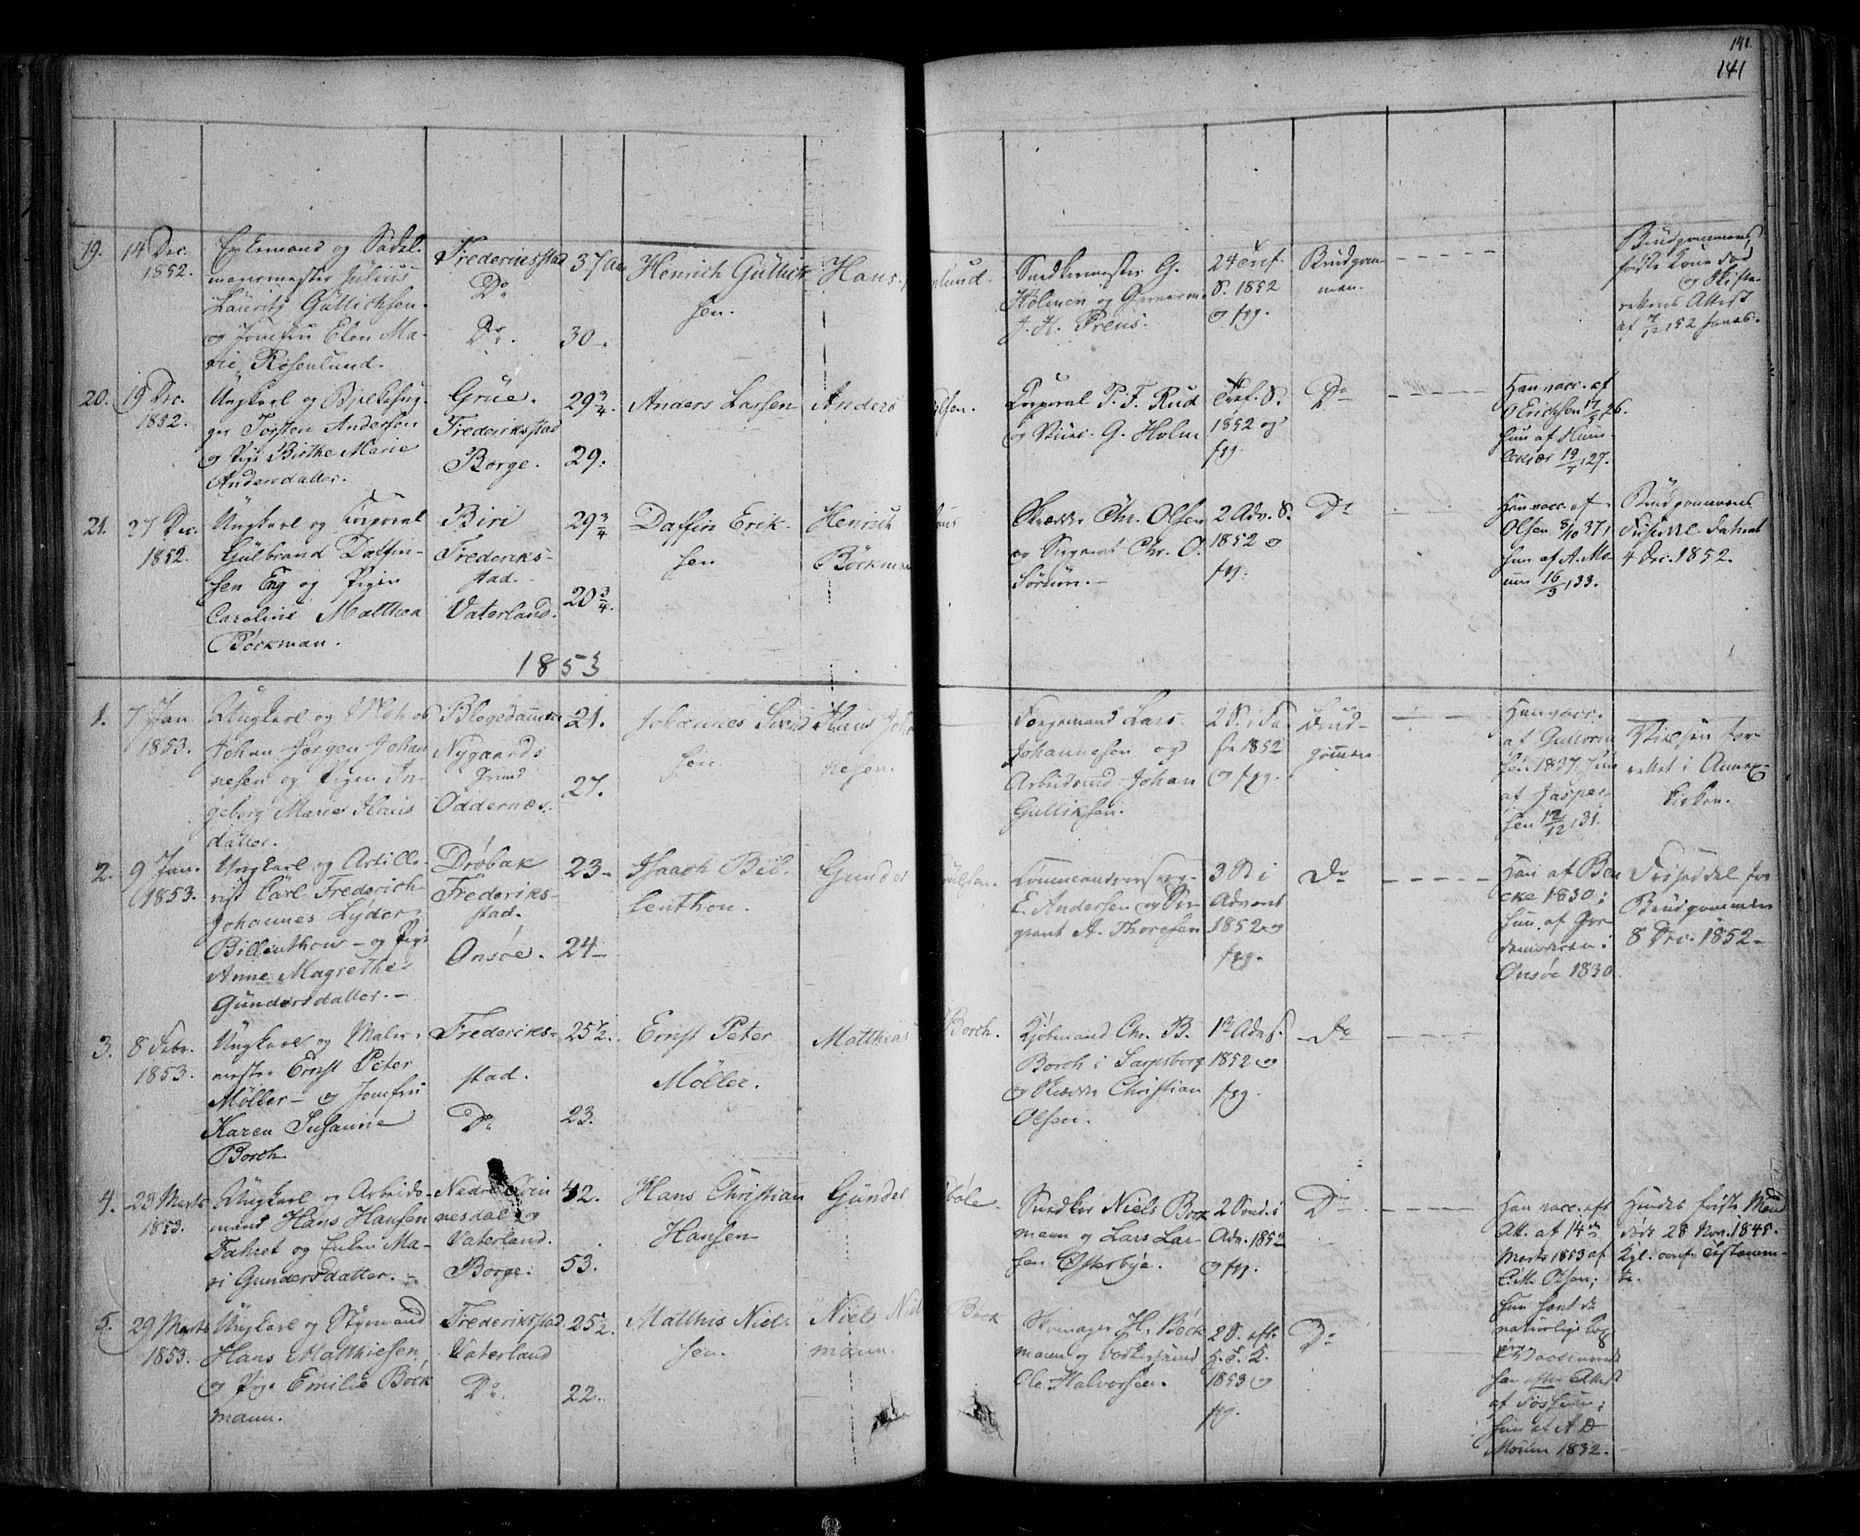 141.
141
19.
14 Dec.
1852.
Enkemand og Sadel-
magermester Julius
Lauritz Gullichsen
og Jomfru Elen Ma-
rie Rosenlund.
Frederiksstad
Do
Do.
37 Aar
30
Henrich Gullich
sen.
Hans
nlund.
Snedkermester G.
Holmen og
J. H. Preus.
24 Tref
S. 1852
o fgg.
Brudgom-
men.
Brudgommens
første Kone død
og Skifte-
rettens Attest
af 7/12 52
20.
19 Dec.
1852.
Ungkarl og
Torsten Andersen
o Pige Birthe Marie
Andersdatter.
Grue.
Frederiksstad
Borge.
29 3/4
29.
Anders Larsen
Anders
Olsen.
Corporal P. F. Rud
og G. Holm
Tref. S.
1852 og
fgg.
Do
Han vacc. af
Erichsen 17/5 26.
hun af Hum-
19/7 27.
21.
27 Dec.
1852.
Ungkarl og Corporal
Gulbrand Daffin-
sen Eng og Pigen
Caroline Mathea
Böckman.
Biri
Frederiks-
stad.
Vaterland.
29 3/4
20 3/4
Daffin Erik-
sen
Henrich
Böckman
Skrædder Chr. Olsen
og Sergeant Chr. O.
2 Adv. S.
1852 o
fgg.
Do
Han vacc. af
Olsen 8/10 37,
hun af A. Mo-
16/9 33.
Brudgommens
Friseddel dateret
4 Dec. 1852.
1853
1.
7 Jan
1853.
Ungkarl og Matros
Johan Jørgen Johan
nesen og Pigen In-
geborg Marie Hans
datter.
Blegedammen
Nygaards
Grund
Oddernæs.
21.
27.
Johannes
sen.
Hans Joha
nesen.
Formand Lars
Johannesen og
Arbeidsmd Johan
Gulliksen.
2 S. i Fa
ste 1852
o fgg.
Brud-
gommen
Han vacc.
af Guttorm
sen 1837 hun
af Jasper-
sen 12/12 31.
Vielsen for
rettet i Annex-
kirken.
2.
9 Jan.
1853.
Ungkarl og Artille-
rist Carl Frederich
Johannes Lyder
Billenthow - og Pige
Anne Magrethe
Gundersdatter. -
Drøbak
Frederiks-
stad.
Onsøe.
23
24
Isaach Bil-
lenthow.
Gunder
E. Andersen og Ser-
geant A. Thoresen
3 S i
Advent
1852 o
fgg.
Do
Han af Ben
cke 1830;
hun af
i
Onsøe 1830
Friseddel for
Brudgommen
8 Dec. 1852 -
3.
8 Febr.
1853.
Ungkarl og Maler-
mester Ernst Peter
Möller - og Jomfru
Karen Susanne
Borch
Frederiks-
stad.
Do
25 1/2.
23.
Ernst Peter
Möller.
Matthias
Borch.
Kjøbmand Chr. B.
Borch i Sarpsborg
og Skrædder Christian
Olsen.
1ste Ad. S.
1852 o
fgg.
Do
4.
23 Marts
1853.
Ungkarl og Arbeids-
mand Hans Hansen
og Enken Ma-
ri Gundersdatter. -
Nedre
nesdal og
Vaterland.
Borge.
42.
53.
Hans Christian
Hansen
Gunder
bøle.
Snedker Niels Bock
mann og Lars Lar-
sen Østerbye.
2 Sønd. i
Adv. 1852
o fgg.
Do
Han vacc. eft.
Att. af 14de
Marts 1853 af
C. M. Olsen;
hun havt de
naturlige Kop
per
Hendes første Mand
døde 28 Nov. 1845.
Kgl. conf. Testamen-
te.
5.
29 Marts
1853.
Ungkarl og Styrmand
Hans Matthiesen
o Pige Emilie Bock
mann.
Frederiksstad
Vaterland
Do.
25 1/2.
22.
Matthis Niel-
sen.
Niels Niel
Bock
mann.
H. Bock
mann og
Ole Halvorsen.
2 S. eft.
H. 3 K.
1853 o
fgg.
Do
han efter Attest
af
hun af A D
1832.